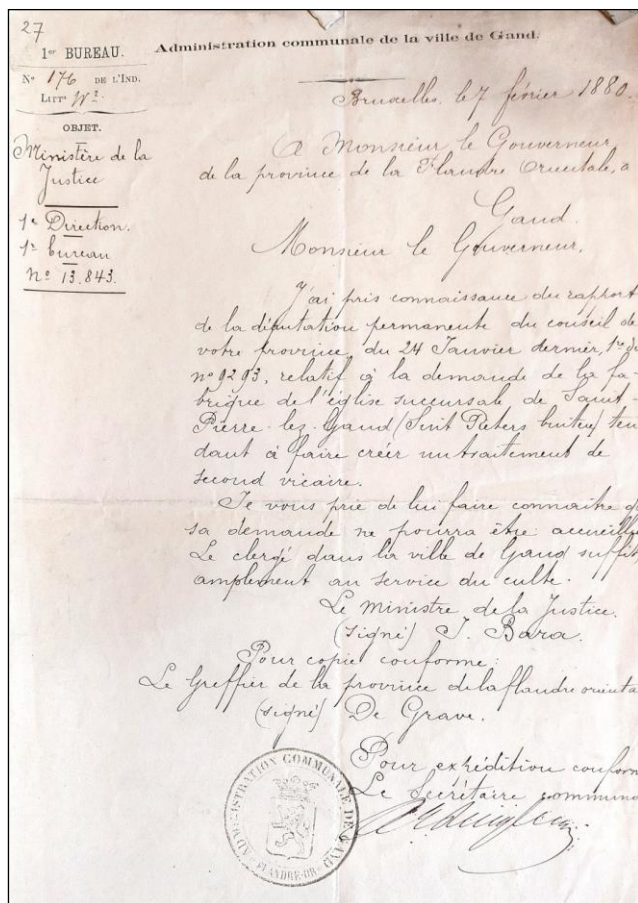 27
1er BUREAU.
No 176 DE L'IND.
LITTa W2.
OBJET.
Ministère de la
Justice
1e Direction.
1r bureau
No 13.843.
Administration communale de la ville de Gand.
Bruxelles, le 7 février 1880.
A Monsieur le Gouverneur
de la province de la Flandre Orientale, à
Gand.
Monsieur le Gouverneur,
J'ai pris connaissance du rapport
de la députation permanente du conseil de
votre province, du 24 Janvier dernier, 1re
no 9293, relatif à la demande de la fa-
brique de l'église succursale de Saint-
Pierre-lez-Gand (Sint Pieters buiten) ten
dant à faire créer un traitement de
second vicaire.
Je vous prie de lui faire connaitre q
sa demande ne pourra être accueill
Le clergé dans la ville de Gand suffit
amplement au service du culte.
Le ministre de la Justice.
(signé) J. Bara.
Pour copie conforme:
Le Greffier de la province de la flandre orienta
(signé) De Grave.
Pour expédition conform
Le Secrétaire commun
ADMINISTRATION COMMUNALE DE GAND
FLANDRE-OR